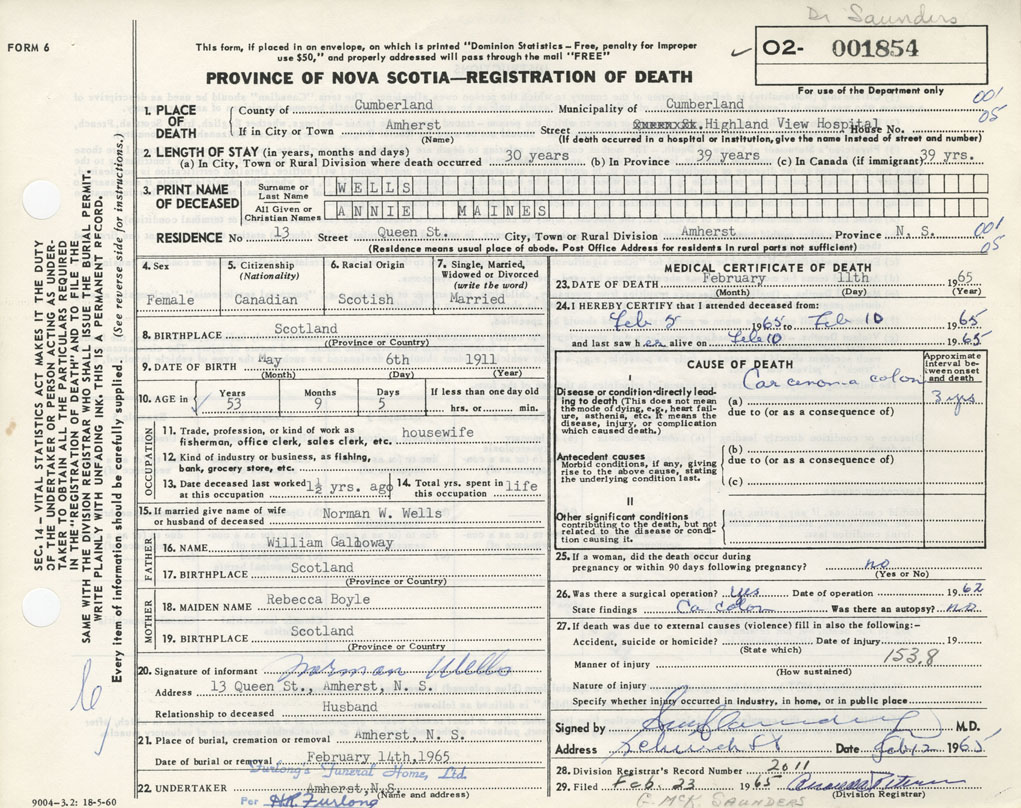 Dr Saunders
FORM 6
This form, if placed in an envelope, on which is printed "Dominion Statistics – Free, penalty for Improper
use $50," and properly addressed will pass through the mail "FREE"
✓ O2- 001854
For use of the Department only
PROVINCE OF NOVA SCOTIA—REGISTRATION OF DEATH
001
05
1. PLACE OF DEATH County of Cumberland Municipality of Cumberland
If in City or Town Amherst Street Highland View Hospital House No.
(Name) (If death occurred in a hospital or institution, give the name instead of street and number)
2. LENGTH OF STAY (in years, months and days)
(a) In City, Town or Rural Division where death occurred 30 years (b) In Province 39 years (c) In Canada (if immigrant) 39 yrs.
3. PRINT NAME OF DECEASED
Surname or Last Name WELLS
All Given or Christian Names ANNIE MAINES
RESIDENCE No 13 Street Queen St. City, Town or Rural Division Amherst Province N. S.
001
05
(Residence means usual place of abode. Post Office Address for residents in rural parts not sufficient)
4. Sex Female
5. Citizenship (Nationality) Canadian
6. Racial Origin Scotish
7. Single, Married, Widowed or Divorced (write the word) Married
8. BIRTHPLACE Scotland
((Province or Country)
9. DATE OF BIRTH May 6th 1911
(Month) (Day) (Year)
10. AGE in ✓ Years 53 Months 9 Days 5 If less than one day old
hrs. or min.
OCCUPATION
11. Trade, profession, or kind of work as fisherman, office clerk, sales clerk, etc. housewife
12. Kind of industry or business, as fishing, bank, grocery store, etc.
13. Date deceased last worked at this occupation 1½ yrs. ago
14. Total yrs. spent in this occupation life
15. If married give name of wife or husband of deceased Norman W. Wells
FATHER
16. NAME William Galloway
17. BIRTHPLACE Scotland
(Province or Country)
MOTHER
18. MAIDEN NAME Rebecca Boyle
19. BIRTHPLACE Scotland
(Province or Country
20. Signature of informant Norman Wells
Address 13 Queen St., Amherst, N. S.
Relationship to deceased Husband
21. Place of burial, cremation or removal Amherst, N. S.
Date of burial or removal February 14th, 1965
Furlong's Funeral Home, Ltd.
22. UNDERTAKER Amherst, N.S.
(Name and address)
Per H.R. Furlong
9004-3.2: 18-5-60
MEDICAL CERTIFICATE OF DEATH
23. DATE OF DEATH February 11th 1965
(Month) (Day) (Year)
24. I HEREBY CERTIFY that I attended deceased from:
Feb 5 1965 to Feb 10 1965
and last saw her alive on Feb 10 1965
CAUSE OF DEATH
Approximate interval between onset and death
I
Disease or condition directly leading to death (This does not mean the mode of dying, e.g., heart failure, asthenia, etc. It means the disease, injury, or complication which caused death.)
(a) Carcinoma colon 3 yrs
due to (or as a consequence of)
Antecedent causes
Morbid conditions, if any, giving rise to the above cause, stating the underlying condition last.
(b)
due to (or as a consequence of)
(c)
II
Other significant conditions
contributing to the death, but not related to the disease or condition causing it.
25. If a woman, did the death occur during
pregnancy or within 90 days following pregnancy? no
(Yes or No)
26. Was there a surgical operation? yes Date of operation 1962
State findings Ca colon Was there an autopsy? no
27. If death was due to external causes (violence) fill in also the following:-
Accident, suicide or homicide? Date of injury 19
(State which) 153.8
Manner of injury
(How sustained)
Nature of injury
Specify whether injury occurred in industry, in home, or in public place
Signed by M.D.
Address Date Feb 12 1965
28. Division Registrar's Record Number 2011
29. Filed Feb. 23 1965
(Division Registrar)
G. McK SAUNDERS
SEC. 14 – VITAL STATISTICS ACT MAKES IT THE DUTY
OF THE UNDERTAKER OR PERSON ACTING AS UNDER-
TAKER TO OBTAIN ALL THE PARTICULARS REQUIRED
IN THE "REGISTRATION OF DEATH" AND TO FILE THE
SAME WITH THE DIVISION REGISTRAR WHO SHALL ISSUE THE BURIAL PERMIT.
WRITE PLAINLY WITH UNFADING INK. THIS IS A PERMANENT RECORD.
Every item of information should be carefully supplied. (See reverse side for instructions.)